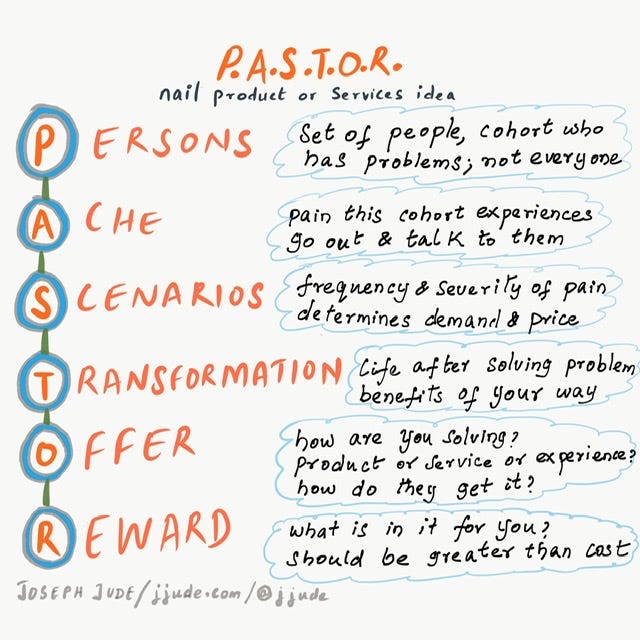 P.A.S.T.O.R.
nail product or services idea
PERSONS
Set of people, cohort who
has problems; not everyone
ACHE
pain this cohort experiences
go out & talk to them
SCENARIOS
frequency & severity of pain
determines demand & price
TRANSFORMATION
Life after solving problem
benefits of your way
OFFER
how are you solving?
product or service or experience?
how do they get it?
REWARD
what is in it for you?
should be greater than cost
JOSEPH JUDE/jjude.com/@jjude